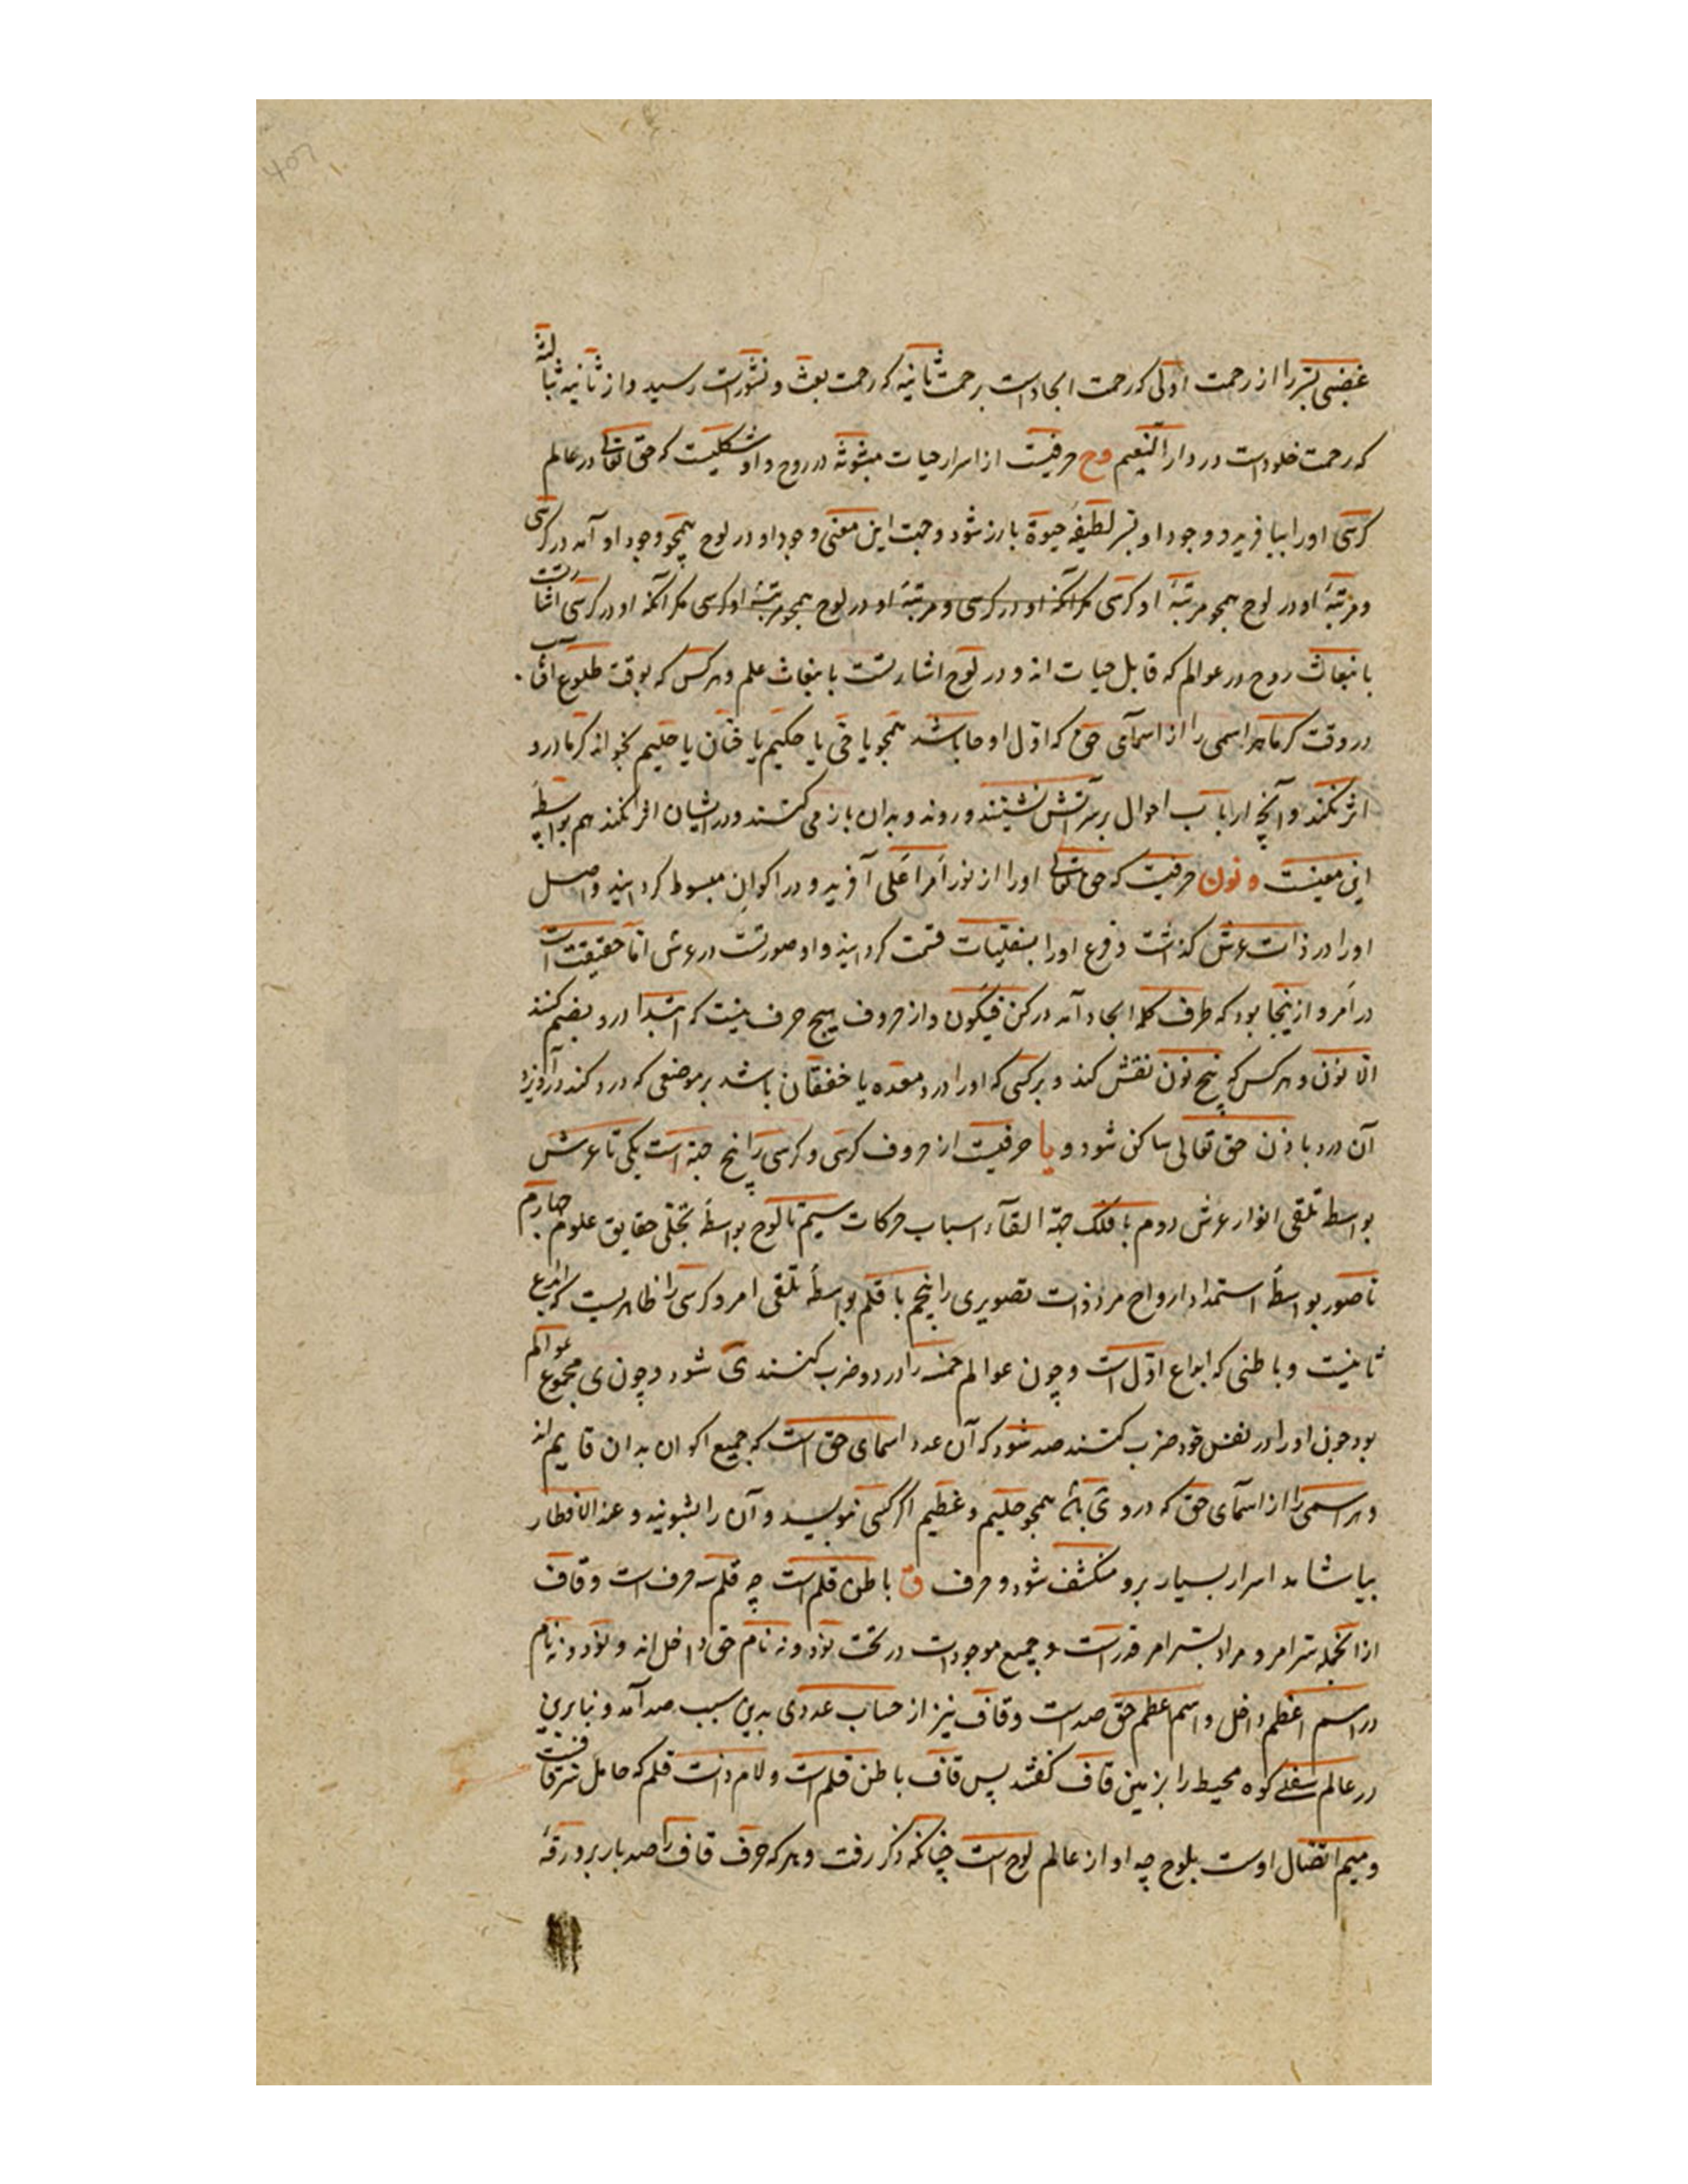 را از رحمت اولی که رحمت ایجادست برحمت ثانیه که رحمت بعث و نشورست رسید و از ثانیه بثالثه
که رحمت خلودست در دار النعیم وح حرفیست از اسرار حیات مبثوثه در روح و او شکلیست که حق تعالی در عالم
کرسی اورا بیافرید و وجود او بسر لطیفهٔ حیوة بارز شود وجهت این معنی وجود او در لوح همچو وجود او آمد در کرسی
و مرتبهٔ او در لوح همچو مرتبهٔ او کرسی مکر آنکه او در کرسی و مرتبهٔ او در لوح همچو مرتبهٔ او کرسی مکر آنکه او در کرسی اشارتست
بانبعاث روح در عوالم که قابل حیات اند و در لوح اشارتست بانبعاث علم و هرکس که بوقت طلوع آفتاب
در وقت کرما هر اسمی را از اسمآی حق که اول او حا باشد همچو یا حی یا حکیم یا حنان یا حلیم بخواند کرما درو
اثر نکند و آنچه ارباب احوال بر سر آتش نشینند و روند و بدان بازی کنند و در ایشان اثر نکند هم بواسطهٔ
این معنیست و نون حرفیست که حق تعالی اورا از نور امر اعلی آفرید و در اکوان مبسوط کردانید و اصل
اورا در ذات عرش کذاشت و فروع اورا بسفلیات قسمت کردانید و او صورتست در عرش اما حقیقت است
در امر و از ینجا بود که طرف کلمهٔ ایجاد آمد در کن فیکون و از حروف هیچ حرف نیست که ابتدا درو بضم کنند
الا نون و هرکس که پنج نون نقش کند و بر کسی که اورا درد معده یا خفقان باشد بر موضعی که درد کند درآویزد
آن درد باذن حق تعالی ساکن شود و یا حرفیست از حروف کرسی و کرسی را پنج جنبه است یکی تا عرش
بواسطهٔ تلقی انوار عرش دوم با فلک جهة القآء اسباب حرکات سیم تا لوح بواسطهٔ تجلی حقایق علوم چهارم
تا صور بواسطهٔ استمداد ارواح مر ذوات تصویری را پنجم با قلم بواسطهٔ تلقی امر و کرسی را ظاهریست که ابداع
ثانیست و باطنی که ابداع اول است و چون عوالم خمسه را در دو ضرب کنند ی شود و چون ی مجموع عوالم
بود چون اورا در نفس خود ضرب کنند صد شود که آن عدد اسمای حق است که جمیع اکوان بدان قایم اند
و هر اسمی را از اسمآی حق که درو ی باشد همچو حلیم و عظیم اکر کسی بنویسد و آن را بشویند و عند الافطار
بیاشامد اسرار بسیار برو منکشف شود و حرف ق باطن قلم است چه قلم سه حرف است و قاف
از انجمله سر امر و مراد بسر امر قدرتست و جمیع موجودات در تحت نود و نه نام حق داخل اند و نود و نه نام
در اسم اعظم داخل و اسم اعظم حق صد است و قاف نیز از حساب عددی بدین سبب صد آمد و بنابرین
در عالم سفلی کوه محیط را بزمین قاف کفتند پس قاف باطن قلم است و لام ذات قلم که حامل سر قافست
و میم اتصال اوست بلوح چه او از عالم لوح است چنانکه ذکر رفت و هرکه حرف قاف را صد بار بر ورقهٔ